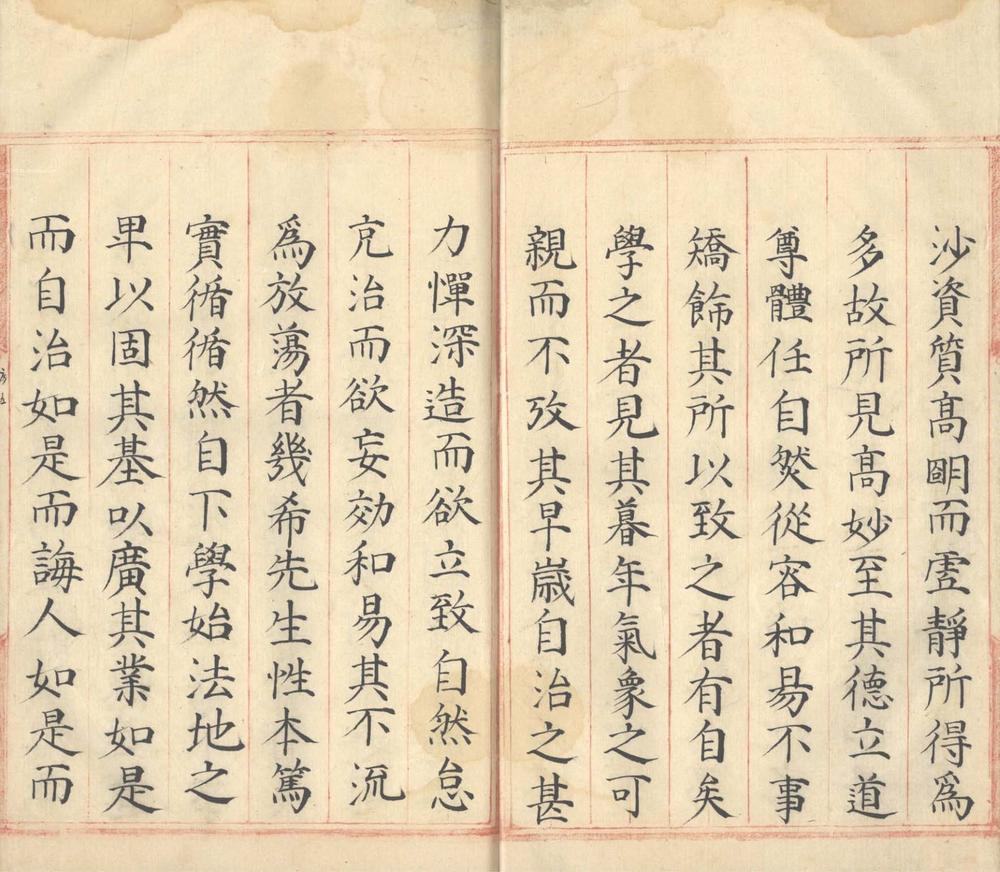 沙資質髙明而虛靜所得爲
多故所見髙妙至其德立道
尊體任自然從容和昜不事
矯餙其所以致之者有自矣
學之者見其暮年氣象之可
親而不攷其早嵗自治之甚
力憚深造而欲立致自然怠
克治而欲妄効和易其不流
爲放蕩者幾希先生性本篤
實循循然自下學始法地之
卑以固其基以廣其業如是
而自治如是而誨人如是而